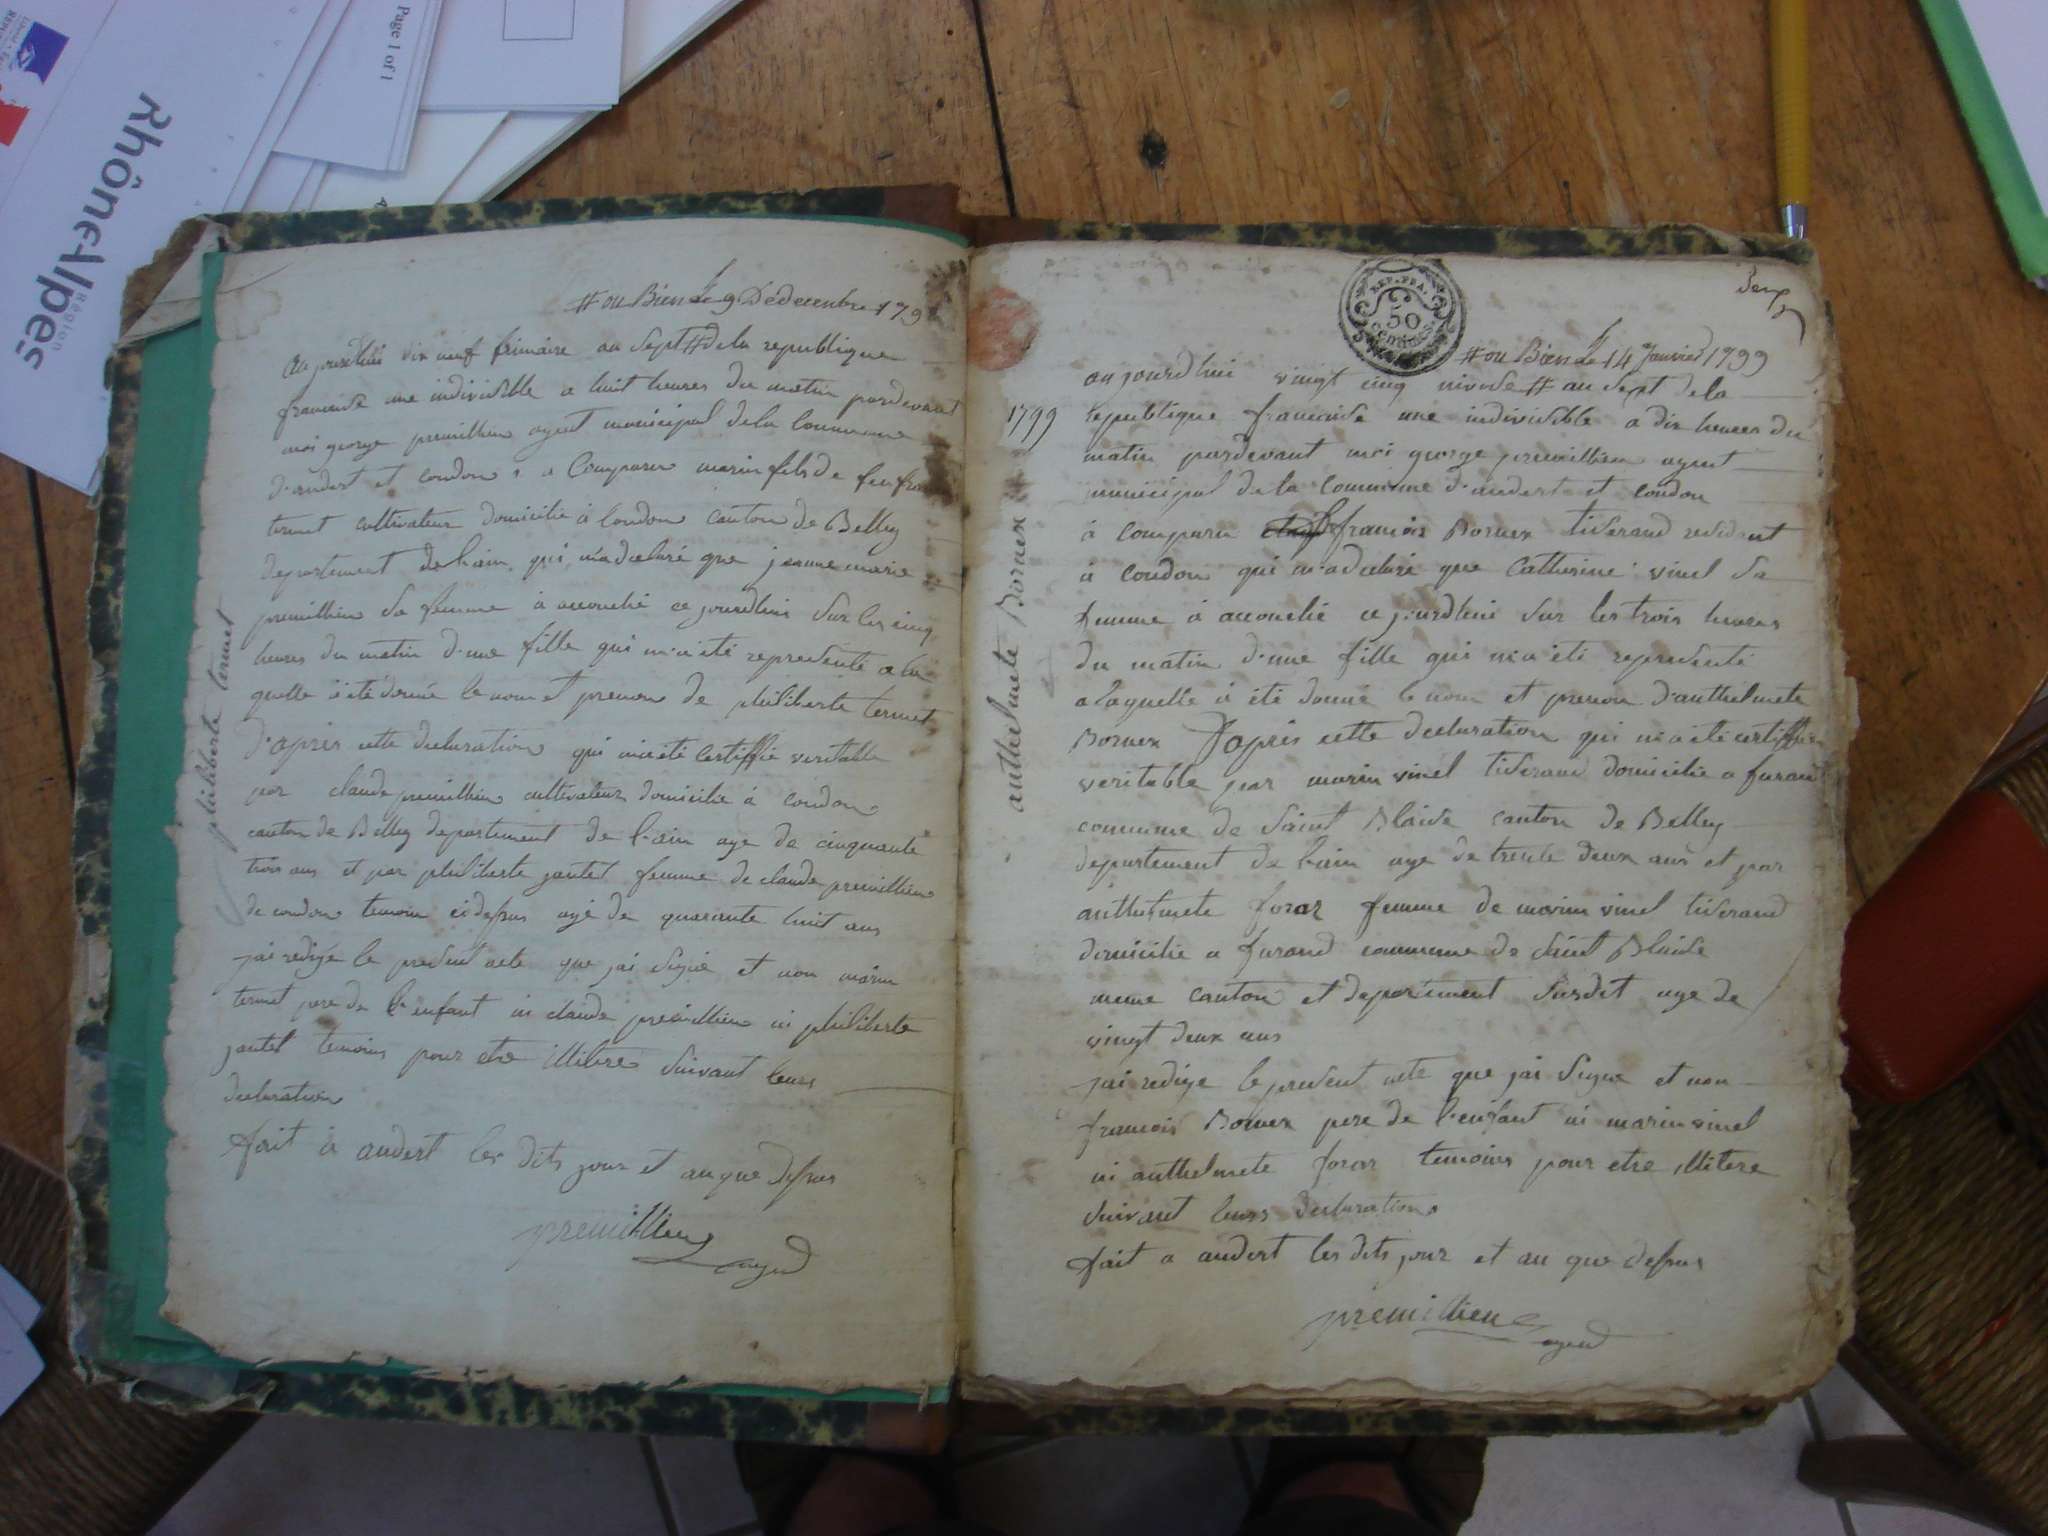 Page 1 of 1
Rhône-Alpes
Région
# ou Bien Le 9 De decembre 179
Aujourdhui dix neuf frimaire an sept # de la republique
francaise une indivisible a huit heures du matin pardevant
moi george premillieu agent municipal de la Commune
d'andert et condon à Comparu marin fils de feu
termet cultivateur domicilié à Condon canton de Belley
departement de l'ain, qui m'a declaré que jeanne marie
premillieu sa femme à accouché ce jourdhui sur les cinq
heures du matin d'une fille qui m'a été representé a la
quelle à été donné le nom et prenom de philiberte termet
D'apres cette declaration qui m'a été certiffié veritable
par claude premillieu cultivateur domicilié à condon
canton de Belley departement de l'ain age de cinquante
trois ans et par philiberte jantet femme de claude premillieu
de condon temoin cidessus agé de quarante huit ans
jai redigé le present acte que jai signé et non marin
termet pere de l'enfant ni claude premillieu ni philiberte
jantet temoins pour etre illitere suivant leurs
declaration
fait à andert les dits jour et an que dessus
premillieu
agent
philiberte termet
deux
REP. FRA.
50
centimes
# ou Bien Le 14 Janvier 1799
aujourdhui vingt cinq nivose # an sept de la
1799
republique francaise une indivisible a dix heures du
matin pardevant moi george premillieu agent
municipal de la Commune d'andert et condon
à comparu francois Bornex tiserand residant
à condon qui m'a declaré que Catherine vinel sa
femme à accouché ce jourdhui sur les trois heures
du matin d'une fille qui m'a été representé
a laquelle à été donné le nom et prenom d'anthelmete
Bornex D'apres cette declaration qui m'a été certiffié
veritable par marin vinel tiserand domicilié a furand
commune de Saint Blaise canton de Belley
departement de l'ain age de trente deux ans et par
anthelmete forar femme de marin vinel tiserand
domicilié a furand commune de Saint Blaise
meme canton et departement susdit age de
vingt deux ans
jai redigé le present acte que jai signé et non
francois Bornex pere de l'enfant ni marin vinel
ni anthelmete forar temoins pour etre illitere
suivant leurs declaration
fait a andert les dits jour et an que dessus
premillieu
agent
anthelmete Bornex